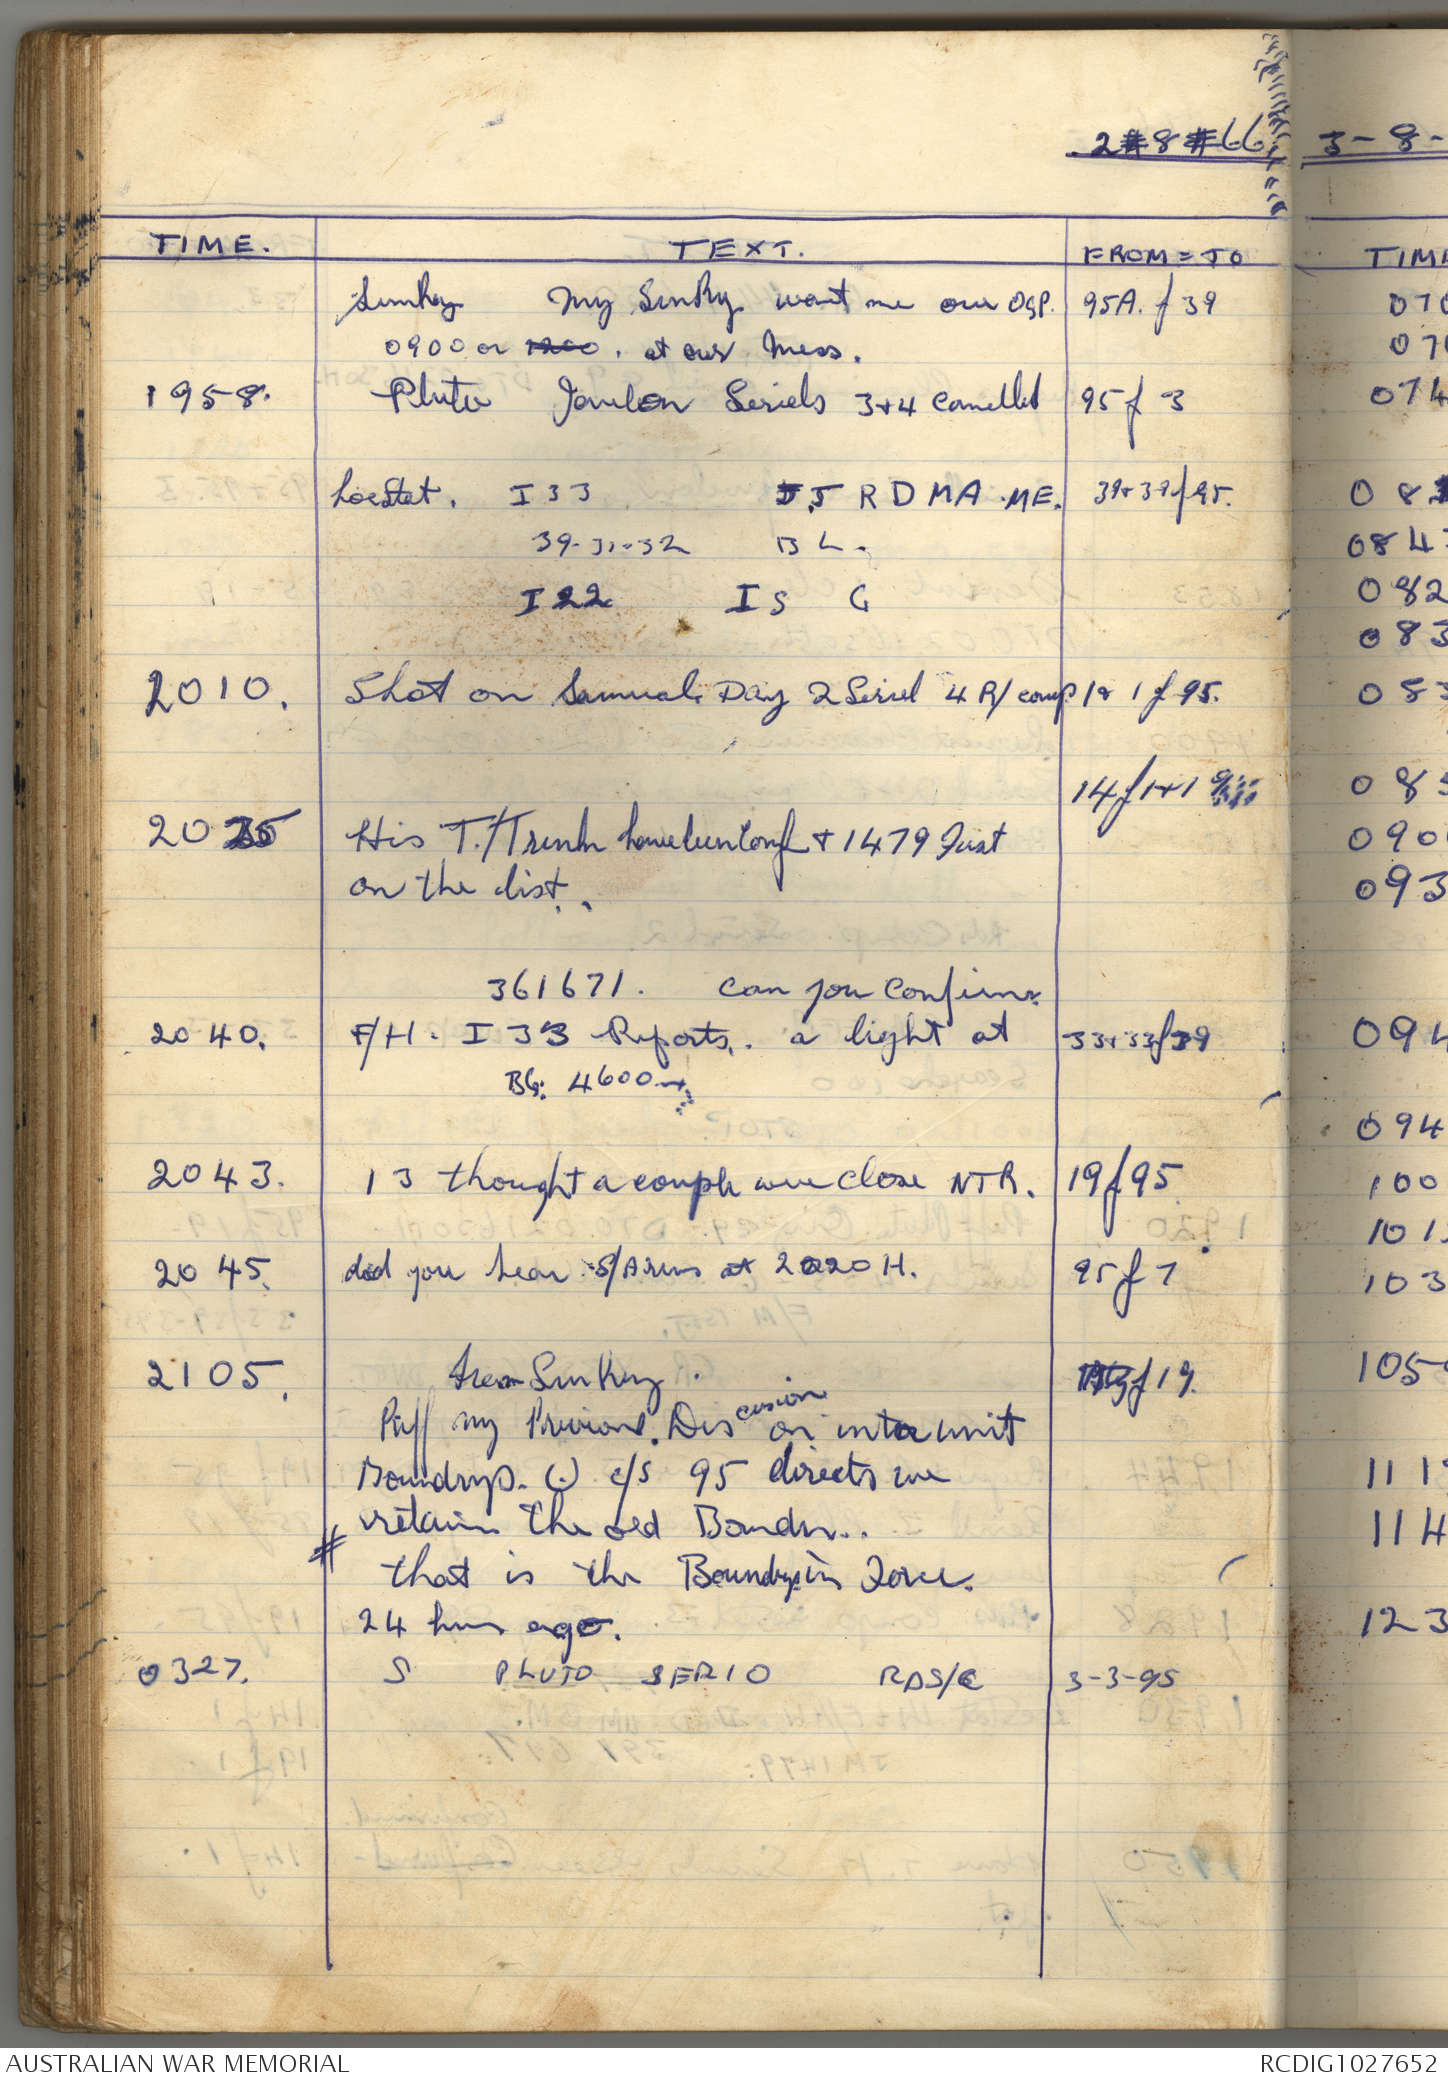 2-8-66
TIME. TEXT. FROM = TO
Sunray My Sunray want me our OGP. 95A. f 39
0900 or 1200. at our Mess.
1958. Pluto Serials 3+4 Cancelled 95 f 3
Locstat. I 33 J.J R D M A . M E. 39+39 f 95.
39-31-32 B L.
I 22 I S G
2010. Shot on Samuals Day 2 Serial 4 R/comp 1+1 f 95.
14 f 1+1
2035 His T./Trunk have been Conf + 1479 Just
on the list.
361671. can you confirm.
2040. F/H. I 33 Reports. a light at 33+33 f 39
BG: 4600
2043. 13 thought a couple were close NTR. 19 f 95
2045. did you hear S/Arms at 2020 H. 95 f 7
2105. from Sunray. f 19.
Reff my Previous. Discusion on inter unit
Boundrys. (.) c/s 95 directs we
retain the old Boundry..
# that is the Boundrys in Force.
24 hrs ago.
0327. S PLUTO SER10 RDS/C 3-3-95
3-8-
TIM
070
07
074
08
084
082
083
083
085
090
093
094
094
100
101
103
105
111
114
123
AUSTRALIAN WAR MEMORIAL RCDIG1027652